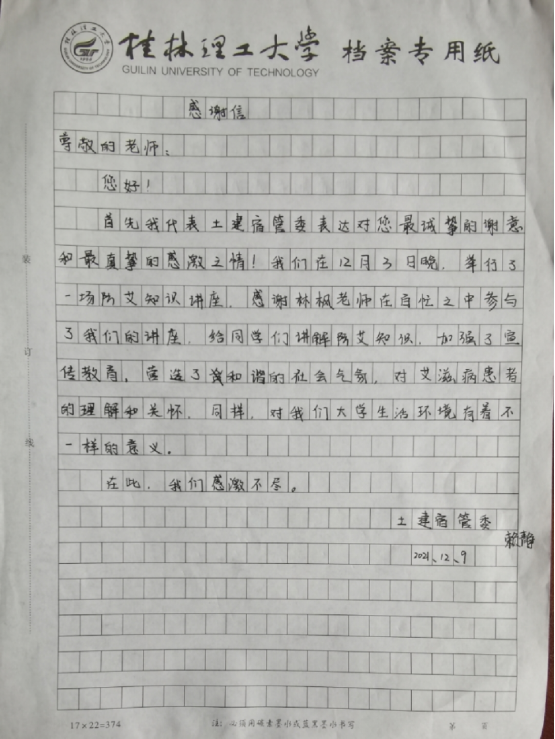 桂林理工大学 档案专用纸
GUILIN UNIVERSITY OF TECHNOLOGY
感谢信
尊敬的老师：
您好！
首先我代表土建宿管委表达对您最诚挚的谢意
和最真挚的感激之情！我们在12月3日晚，举行了
一场防艾知识讲座，感谢林枫老师在百忙之中参与
了我们的讲座，给同学们讲解防艾知识，加强了宣
传教育，营造了和谐的社会气氛，对艾滋病患者
的理解和关怀，同样，对我们大学生活环境有着不
一样的意义。
在此，我们感激不尽。
土建宿管委
赖静
2021、12、9
装
订
线
17×22=374
注：必须用碳素墨水或蓝黑墨水书写
第 页